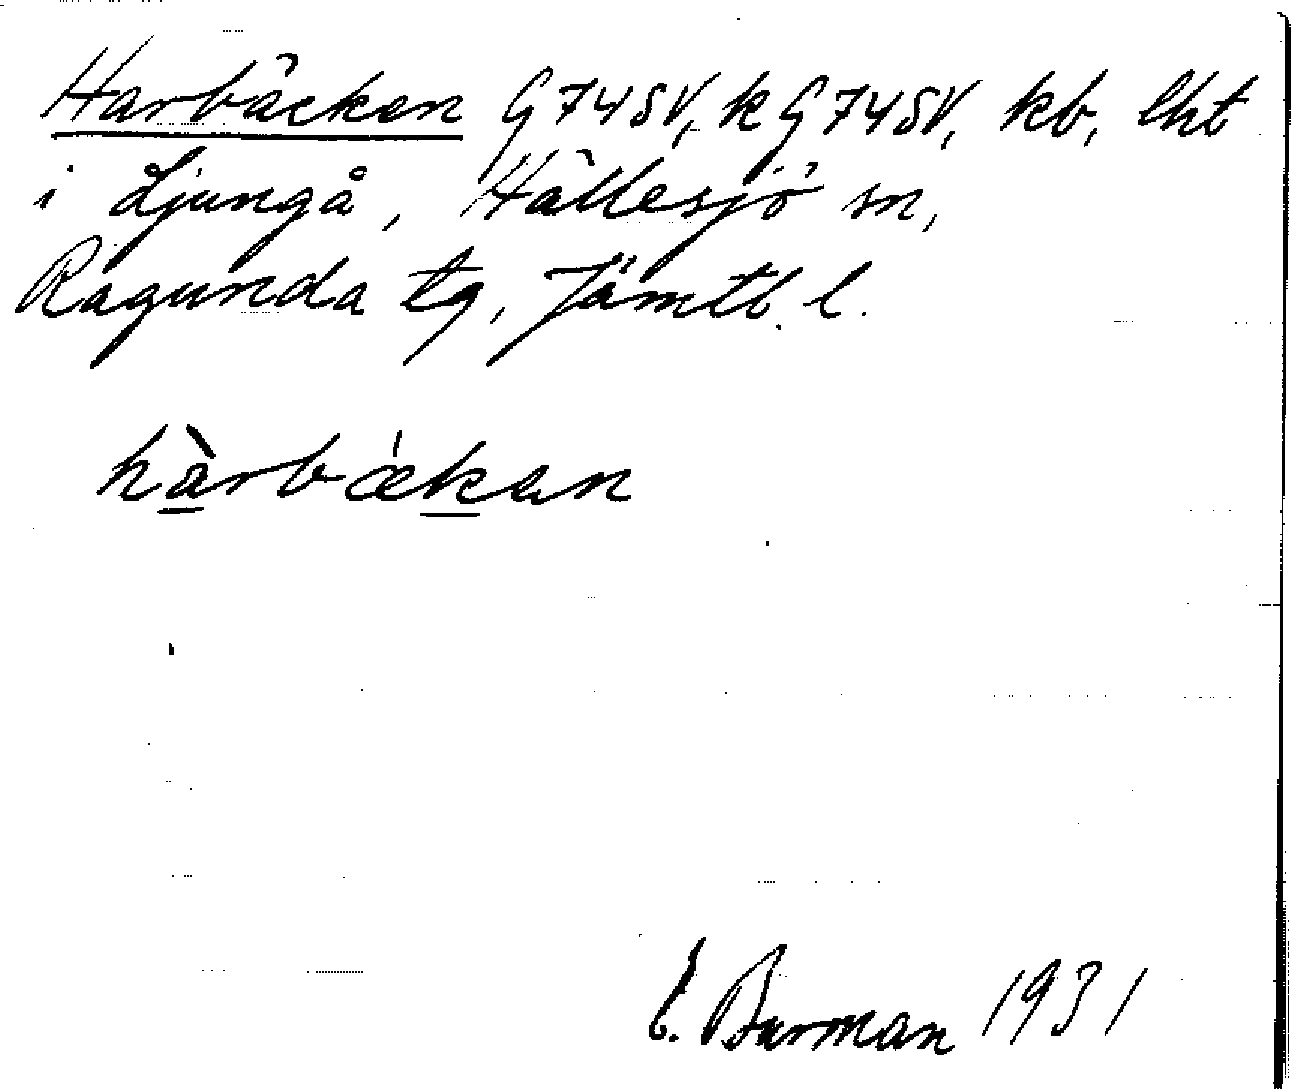 Harbäcken G74SV, k G74SV, kb, lht
i Ljungå, Hällesjö sn,
Ragunda tg, Jämtl. l.
hàrbǽkan
E. Burman 1931